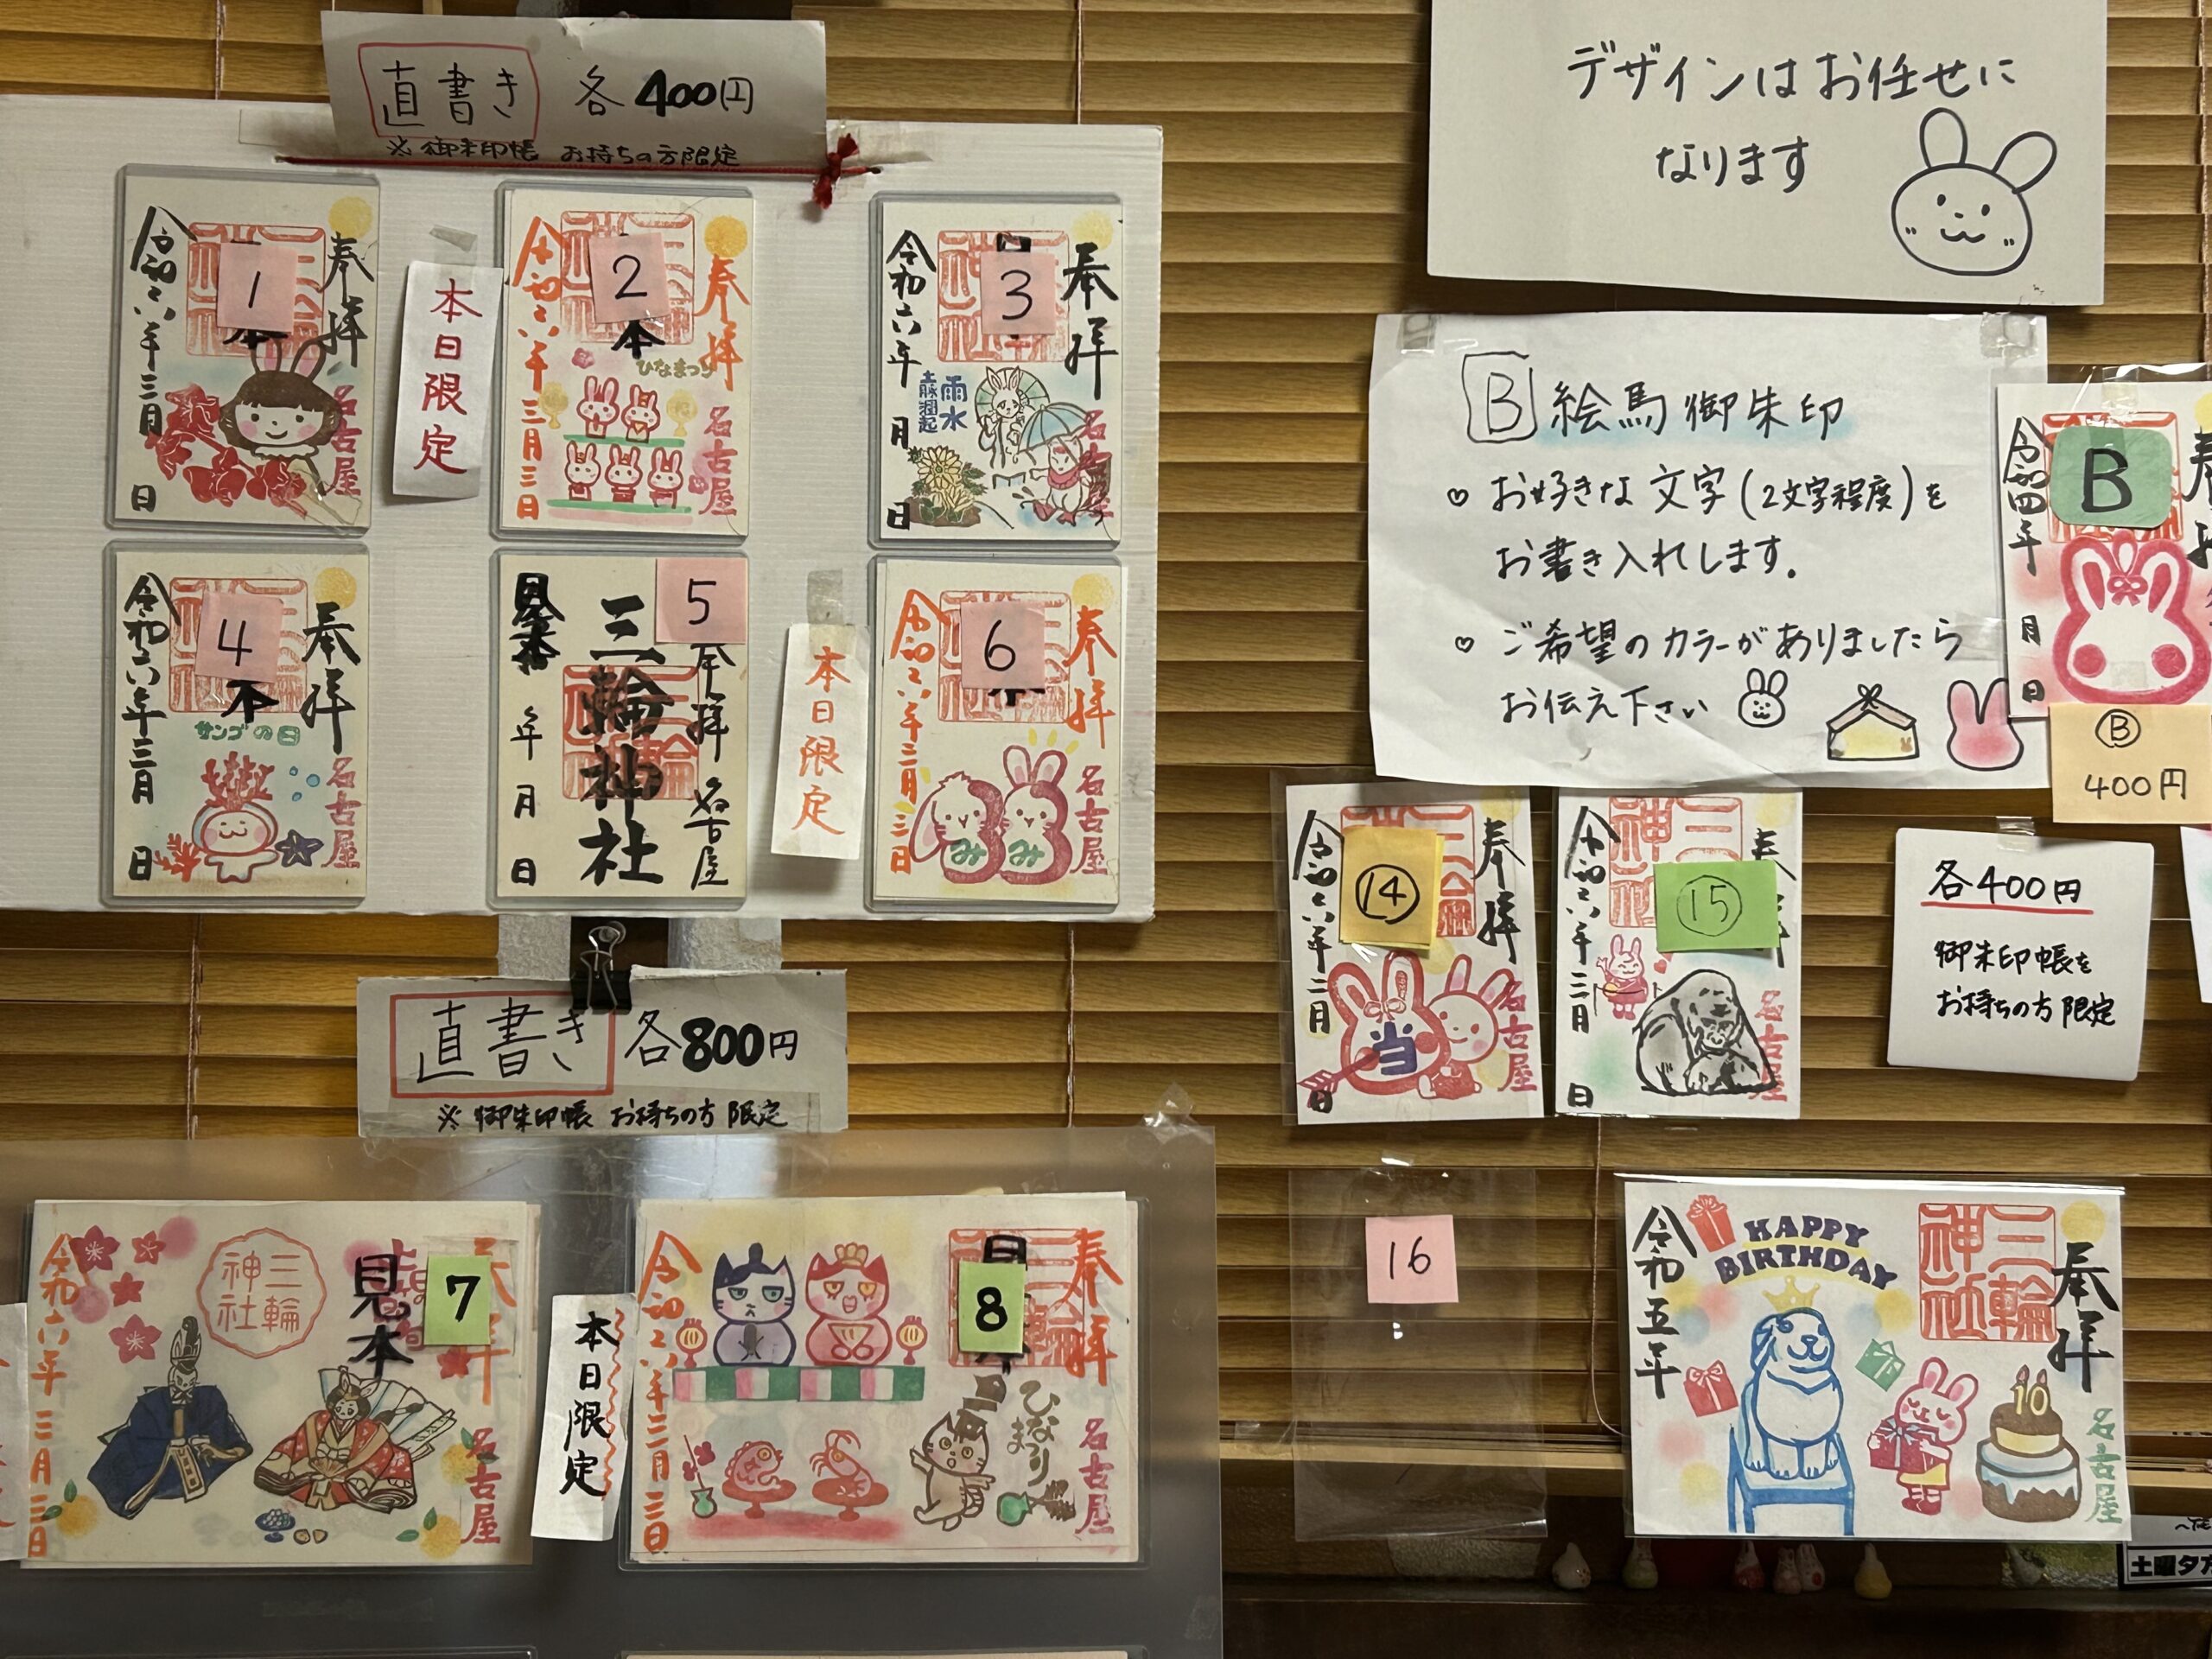 直書き 各400円
※御朱印帳 お持ちの方限定
1
奉拝
令和六年三月 日
名古屋
本日限定
2
奉拝
令和六年三月三日
ひなまつり
名古屋
3
奉拝
令和六年 月 日
雨水
土脉潤起
名古屋
4
奉拝
令和六年三月 日
サンゴの日
名古屋
5
奉拝 名古屋
三輪神社
年 月 日
本日限定
6
奉拝
令和六年三月三日
み み
名古屋
直書き 各800円
※御朱印帳 お持ちの方限定
7
三輪神社
見本
令和六年三月三日
名古屋
本日限定
8
奉拝
令和六年三月三日
ひなまつり
名古屋
デザインはお任せに
なります
B 絵馬御朱印
♡ お好きな文字(2文字程度)を
お書き入れします。
♡ ご希望のカラーがありましたら
お伝え下さい
B
令和四年 月 日
Ⓑ
400円
⑭
奉拝
令和六年二月 日
当
名古屋
⑮
令和六年三月 日
名古屋
各400円
御朱印帳を
お持ちの方限定
16
奉拝
三輪神社
HAPPY
BIRTHDAY
令和五年
10
名古屋
土曜夕方